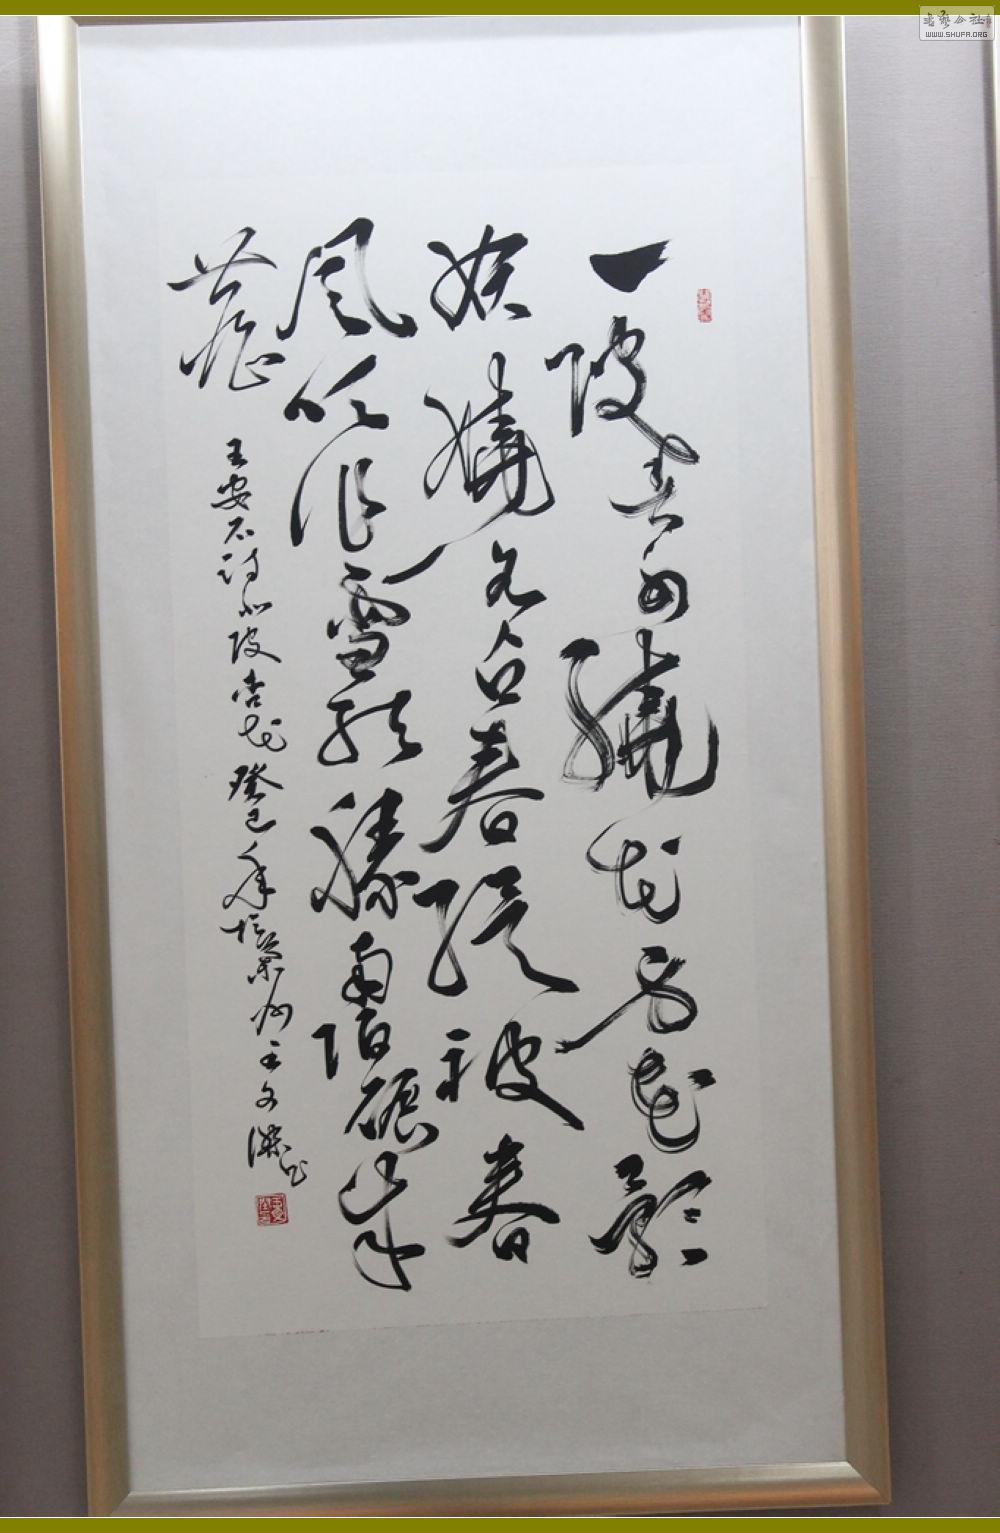 一陂春水繞花身花影
妖嬈各占春縱被春
風吹作雪絕勝南陌碾成
塵
王安石詩北陂杏花 癸巳年 王文傑
书艺公社
WWW.SHUFA.ORG